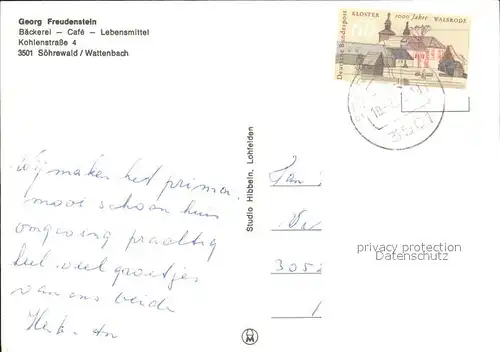 Georg Freudenstein
Bäckerei – Café – Lebensmittel
Kohlenstraße 4
3501 Söhrewald / Wattenbach
Deutsche Bundespost
KLOSTER 1000 Jahre WALSRODE
60
3501
Wij maken het prima
mooi schoon huis
omgeving prachtig
heel veel groetjes
van ons beide
Studio Hibbeln, Lohfelden
305
privacy protection
Datenschutz